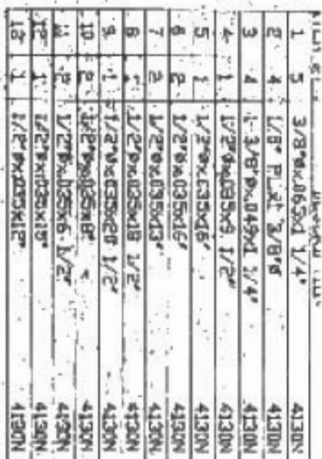 1 3 3/8"Øx.063x1 1/4" 4130N
2 4 1/8" PL 3/8"Ø 4130N
3 4 1 3/8"Øx.049x1 1/4" 4130N
4 1 1/2"Øx.035x9 1/2" 4130N
5 1 1/2"Øx.035x16" 4130N
6 2 1/2"Øx.035x16" 4130N
7 2 1/2"Øx.035x13" 4130N
8 1/2"Øx.035x18 1/2" 4130N
9 1 1/2"Øx.035x20 1/2" 4130N
10 2 1/2"Øx.035x18" 4130N
11 2 1/2"Øx.035x6 1/2" 4130N
12 1 1/2"Øx.035x15" 4130N
1 1/2"Øx.035x12" 4130N